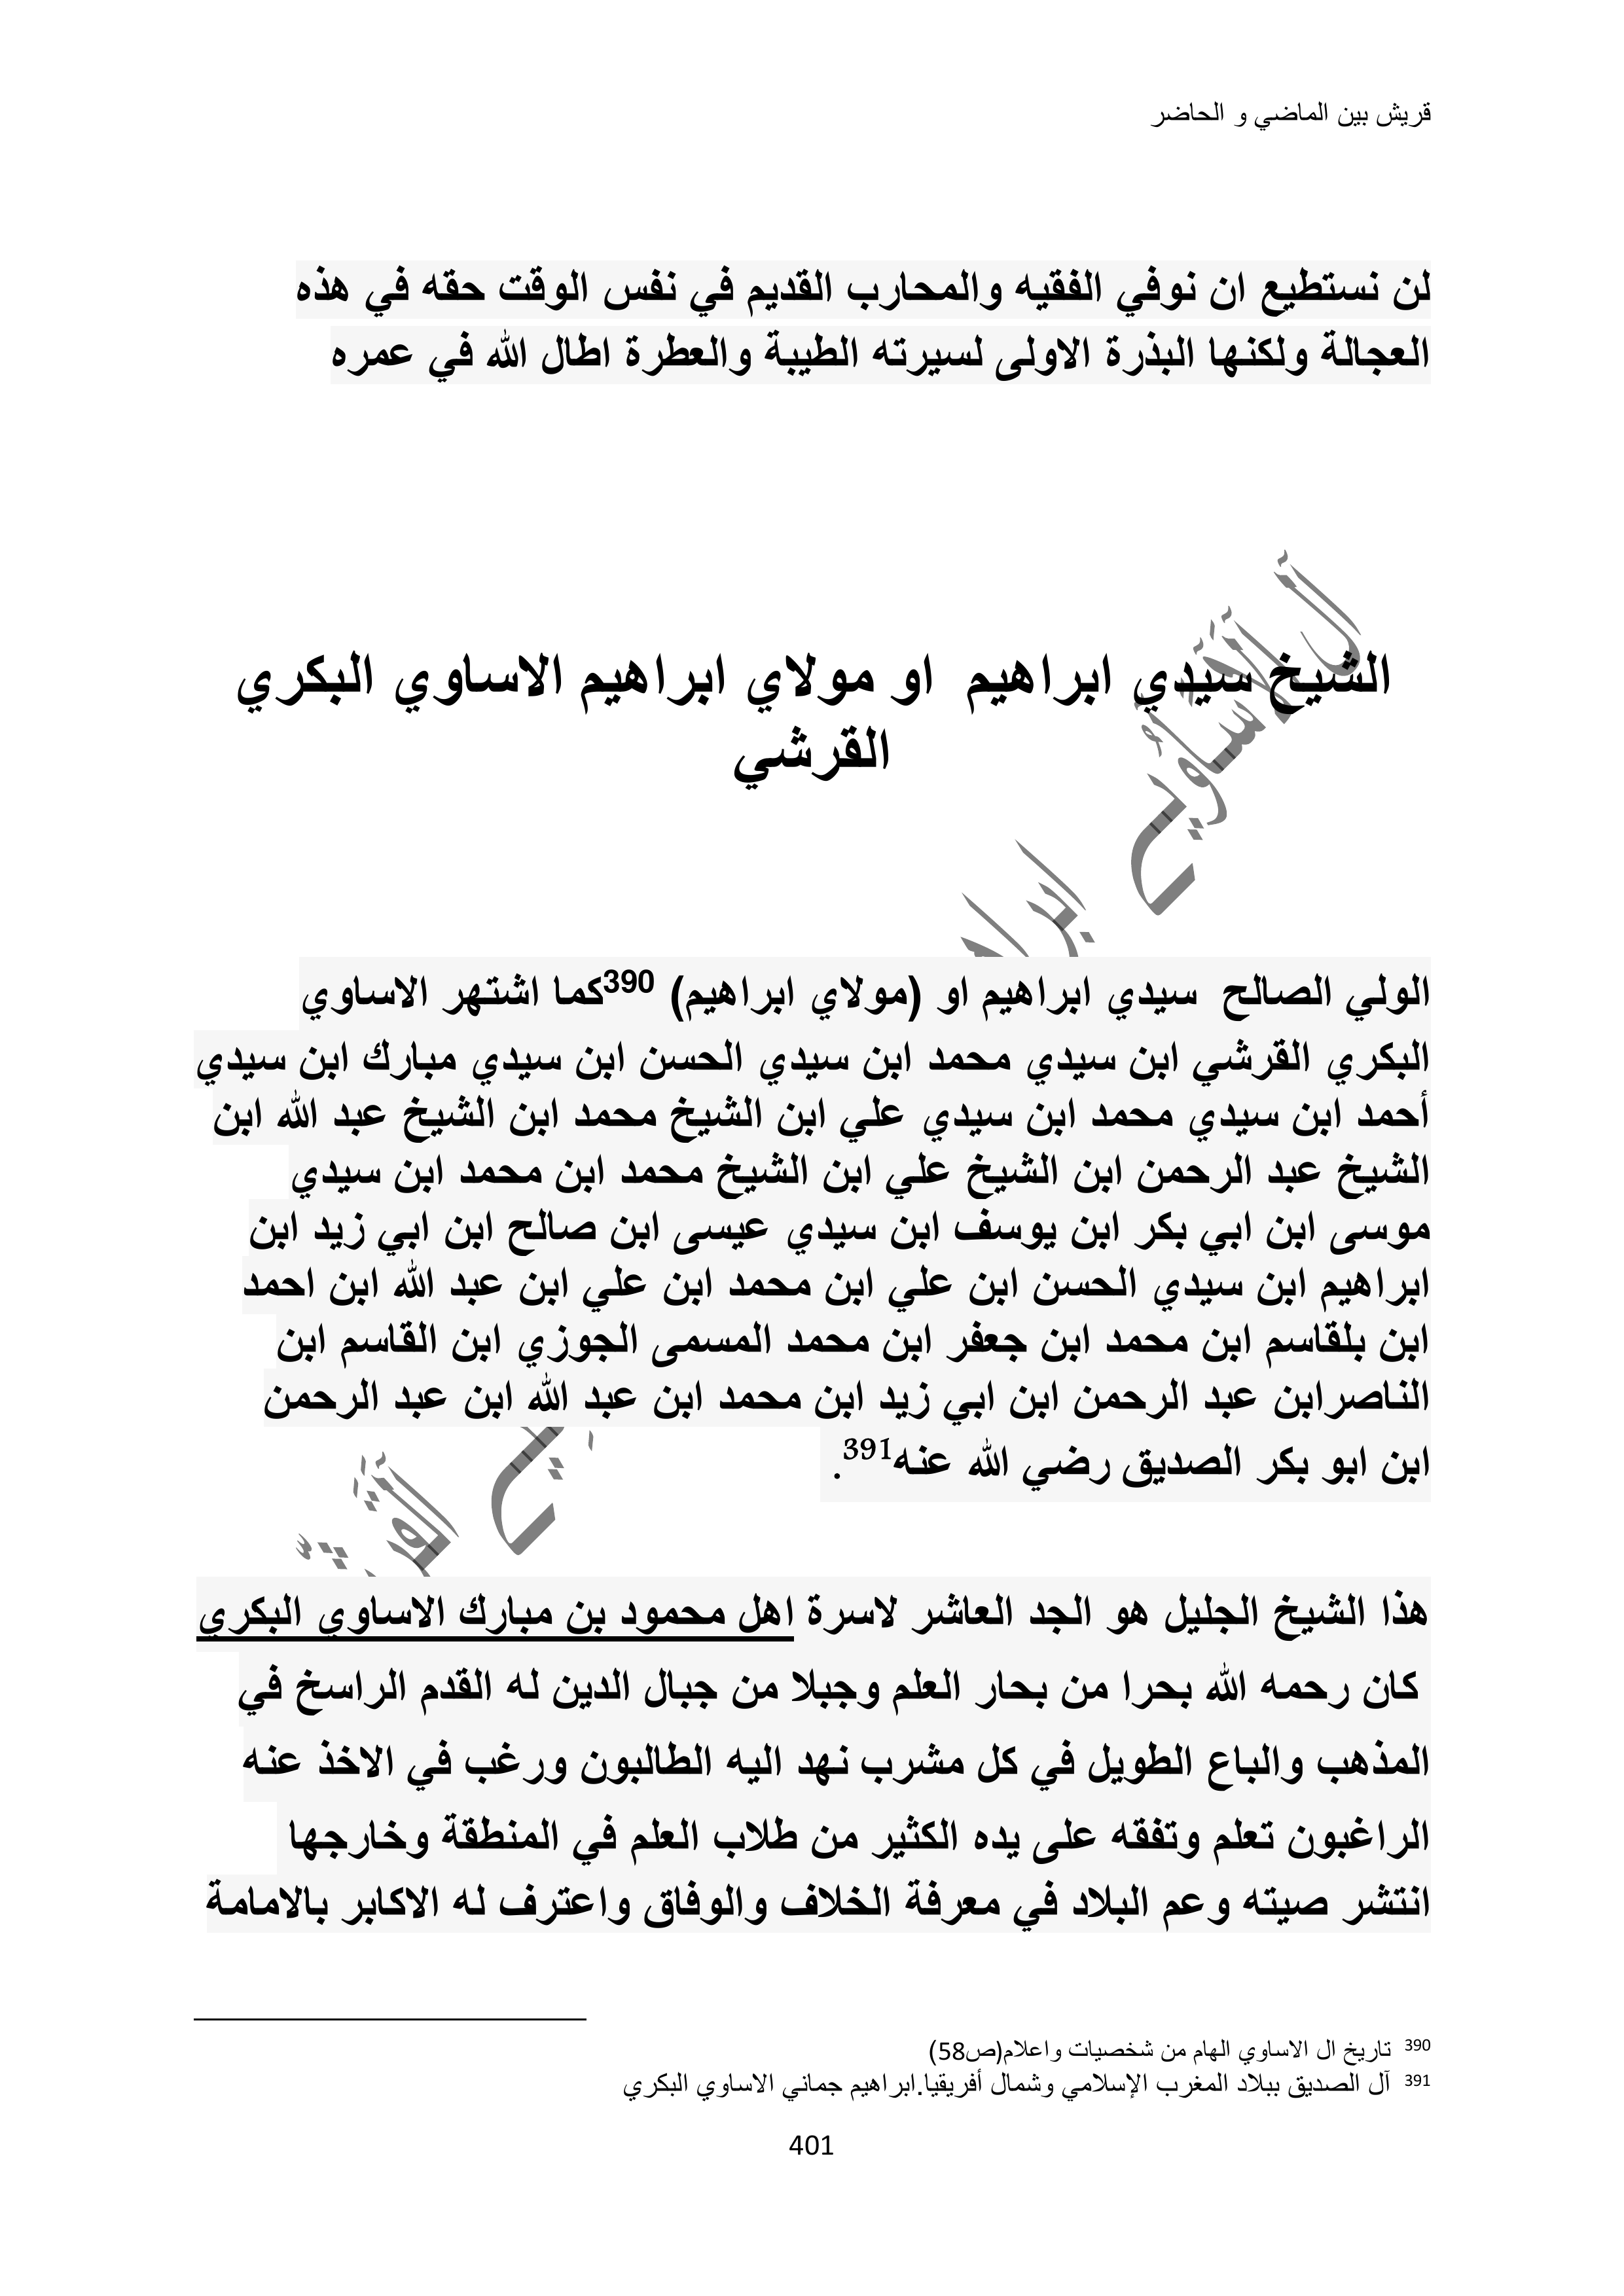 قريش بين الماضي و الحاضر
لن نستطيع ان نوفي الفقيه والمحارب القديم في نفس الوقت حقه في هذه
العجالة ولكنها البذرة الاولى لسيرته الطيبة والعطرة اطال الله في عمره
الشيخ سيدي ابراهيم او مولاي ابراهيم الاساوي البكري
القرشي
الولي الصالح سيدي ابراهيم او (مولاي ابراهيم) 390كما اشتهر الاساوي
البكري القرشي ابن سيدي محمد ابن سيدي الحسن ابن سيدي مبارك ابن سيدي
أحمد ابن سيدي محمد ابن سيدي علي ابن الشيخ محمد ابن الشيخ عبد الله ابن
الشيخ عبد الرحمن ابن الشيخ علي ابن الشيخ محمد ابن محمد ابن سيدي
موسى ابن ابي بكر ابن يوسف ابن سيدي عيسى ابن صالح ابن ابي زيد ابن
ابراهيم ابن سيدي الحسن ابن علي ابن محمد ابن علي ابن عبد الله ابن احمد
ابن بلقاسم ابن محمد ابن جعفر ابن محمد المسمى الجوزي ابن القاسم ابن
الناصرابن عبد الرحمن ابن ابي زيد ابن محمد ابن عبد الله ابن عبد الرحمن
ابن ابو بكر الصديق رضي الله عنه391.
هذا الشيخ الجليل هو الجد العاشر لاسرة اهل محمود بن مبارك الاساوي البكري
كان رحمه الله بحرا من بحار العلم وجبلا من جبال الدين له القدم الراسخ في
المذهب والباع الطويل في كل مشرب نهد اليه الطالبون ورغب في الاخذ عنه
الراغبون تعلم وتفقه على يده الكثير من طلاب العلم في المنطقة وخارجها
انتشر صيته وعم البلاد في معرفة الخلاف والوفاق واعترف له الاكابر بالامامة
390 تاريخ ال الاساوي الهام من شخصيات واعلام(ص58)
391 آل الصديق ببلاد المغرب الإسلامي وشمال أفريقيا.ابراهيم جماني الاساوي البكري
401